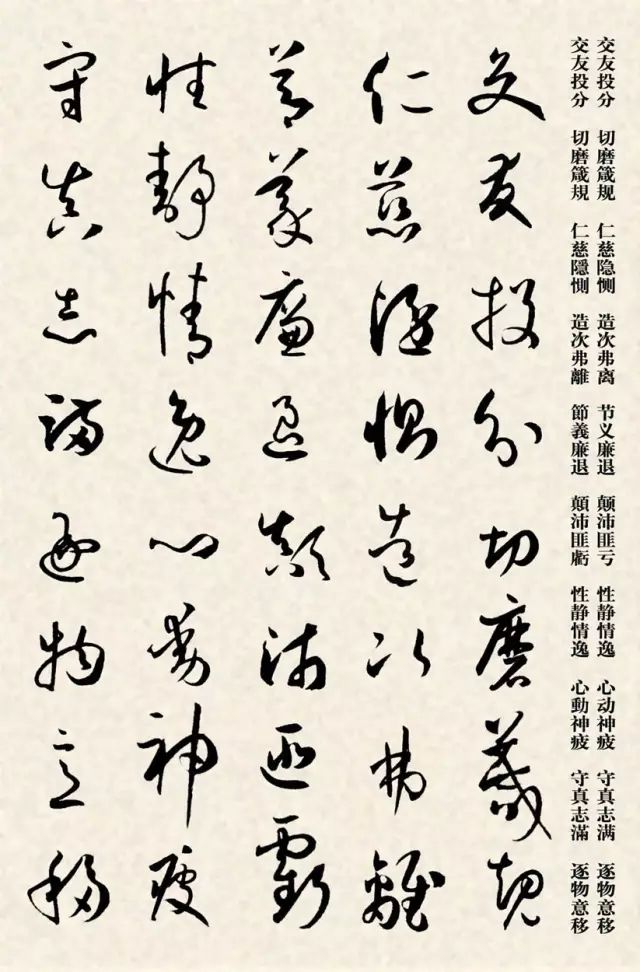 交友投分 切磨箴规 仁慈隐恻 造次弗离 节义廉退 颠沛匪亏 性静情逸 心动神疲 守真志满 逐物意移
交友投分 切磨箴規 仁慈隱惻 造次弗離 節義廉退 顛沛匪虧 性静情逸 心動神疲 守真志滿 逐物意移
交友投分切磨箴規
仁慈隱惻造次弗離
節義廉退顛沛匪虧
性靜情逸心動神疲
守真志滿逐物意移